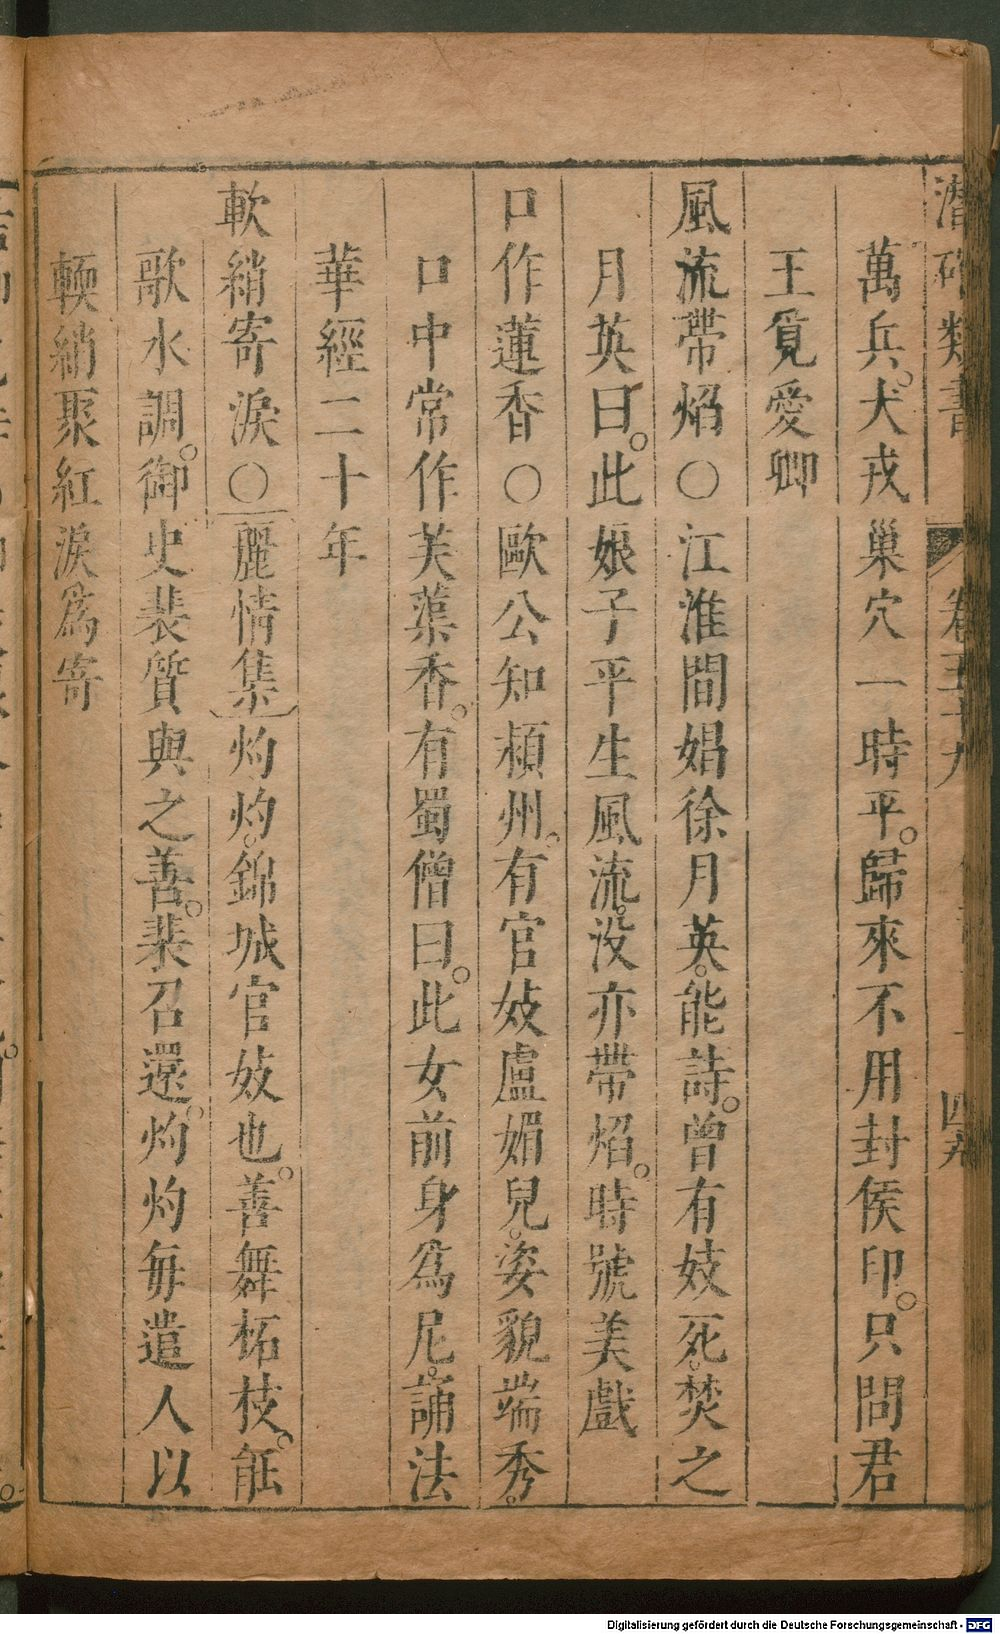 類書
卷五十九
萬兵。犬戎巢穴一時平。歸來不用封侯印。只問君
王覓愛卿
風流帶焰○江淮間娼徐月英。能詩。曾有妓死。焚之
月英曰。此娘子平生風流。没亦帶焰。時號美戲
口作蓮香○歐公知潁州。有官妓盧媚兒。姿貌端秀。
口中常作芙蕖香。有蜀僧曰。此女前身為尼。誦法
華經二十年
軟綃寄淚○麗情集灼灼。錦城官妓也。善舞柘枝。能
歌水調。御史裴質與之善。裴召還。灼灼每遣人以
輭綃聚紅淚為寄
Digitalisierung gefördert durch die Deutsche Forschungsgemeinschaft - DFG